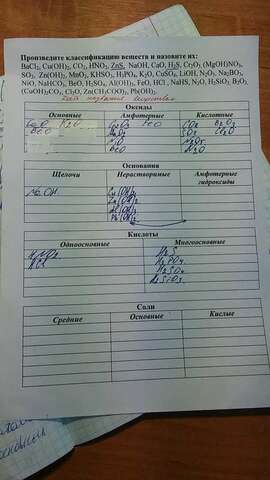 Произведите классификацию веществ и назовите их:
BaCl₂, Cu(OH)₂, CO₂, HNO₃, ZnS, NaOH, CaO, H₂S, Cr₂O₃, (MgOH)NO₃,
SO₂, Zn(OH)₂, MnO₂, KHSO₃, H₃PO₄, K₂O, CuSO₄, LiOH, N₂O₅, Na₂BO₃,
NiO, NaHCO₃, BeO, H₂SO₄, Al(OH)₃, FeO, HCl, NaHS, N₂O, H₂SiO₃, B₂O₃,
(CuOH)₂CO₃, Cl₂O, Zn(CH₃COO)₂, Pb(OH)₂.
Оксиды
Основные Амфотерные Кислотные
CaO K₂O Cr₂O₃ FeO CO₂ B₂O₃
BeO MnO₂ SO₂ Cl₂O
NiO N₂O₅
BeO N₂O
Основания
Щелочи Нерастворимые Амфотерные гидроксиды
NaOH Cu(OH)₂
Zn(OH)₂
Al(OH)₃
Pb(OH)₂
Кислоты
Одноосновные Многоосновные
HNO₃ H₂S
HCl H₃PO₄
H₂SO₄
H₂SiO₃
Соли
Средние Основные Кислые